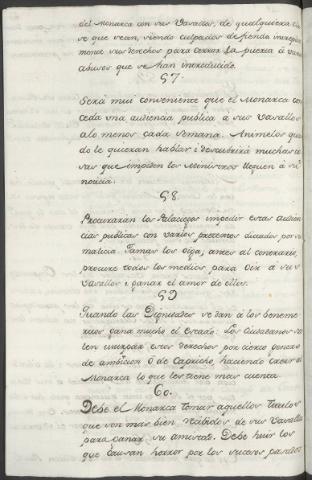 del Monarca con sus Vasallos, de qualquiera
se que sean, siendo culpados defienda
mente sus derechos para cerrar la puerta á
abusos que se han introducido.
57
Será mui conveniente que el Monarca con
ceda una audiencia publica a sus Vasallos
alo menos cada semana. Animelos
do le quieran hablar i descubrirá muchas co
sas que impiden los Ministros lleguen á su
noticia.
58
Procuraran los Palaciegos impedir estas audien
cias publicas con varios pretextos dictados por su
malicia. Jamas los oiga, antes al contrario,
procure todos los medios para oir á sus
Vasallos i ganar el amor de ellos.
59
Quando las Dignidades se dan á los beneme
ritos gana mucho el estado. Los Cortesanos sue
len usurpar estos derechos por cierto genero
de ambicion ó de Capricho, haciendo creer al
Monarca lo que les tiene mas cuenta
60.
Debe el Monarca tomar aquellos titulos
que son mas bien recibidos de sus Vasallos
para ganar su amistad. Debe huir los
que causan horror por los sucesos pasados